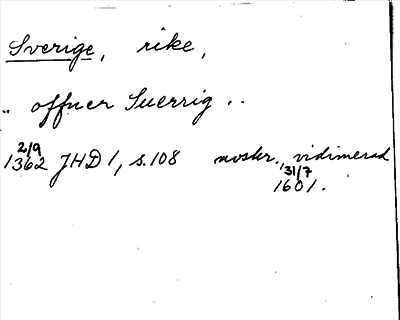 Sverige, rike,
.. offuer Suerrig ..
2/9
1362 JHD 1, s. 108 avskr., vidimerad
31/7
1601.